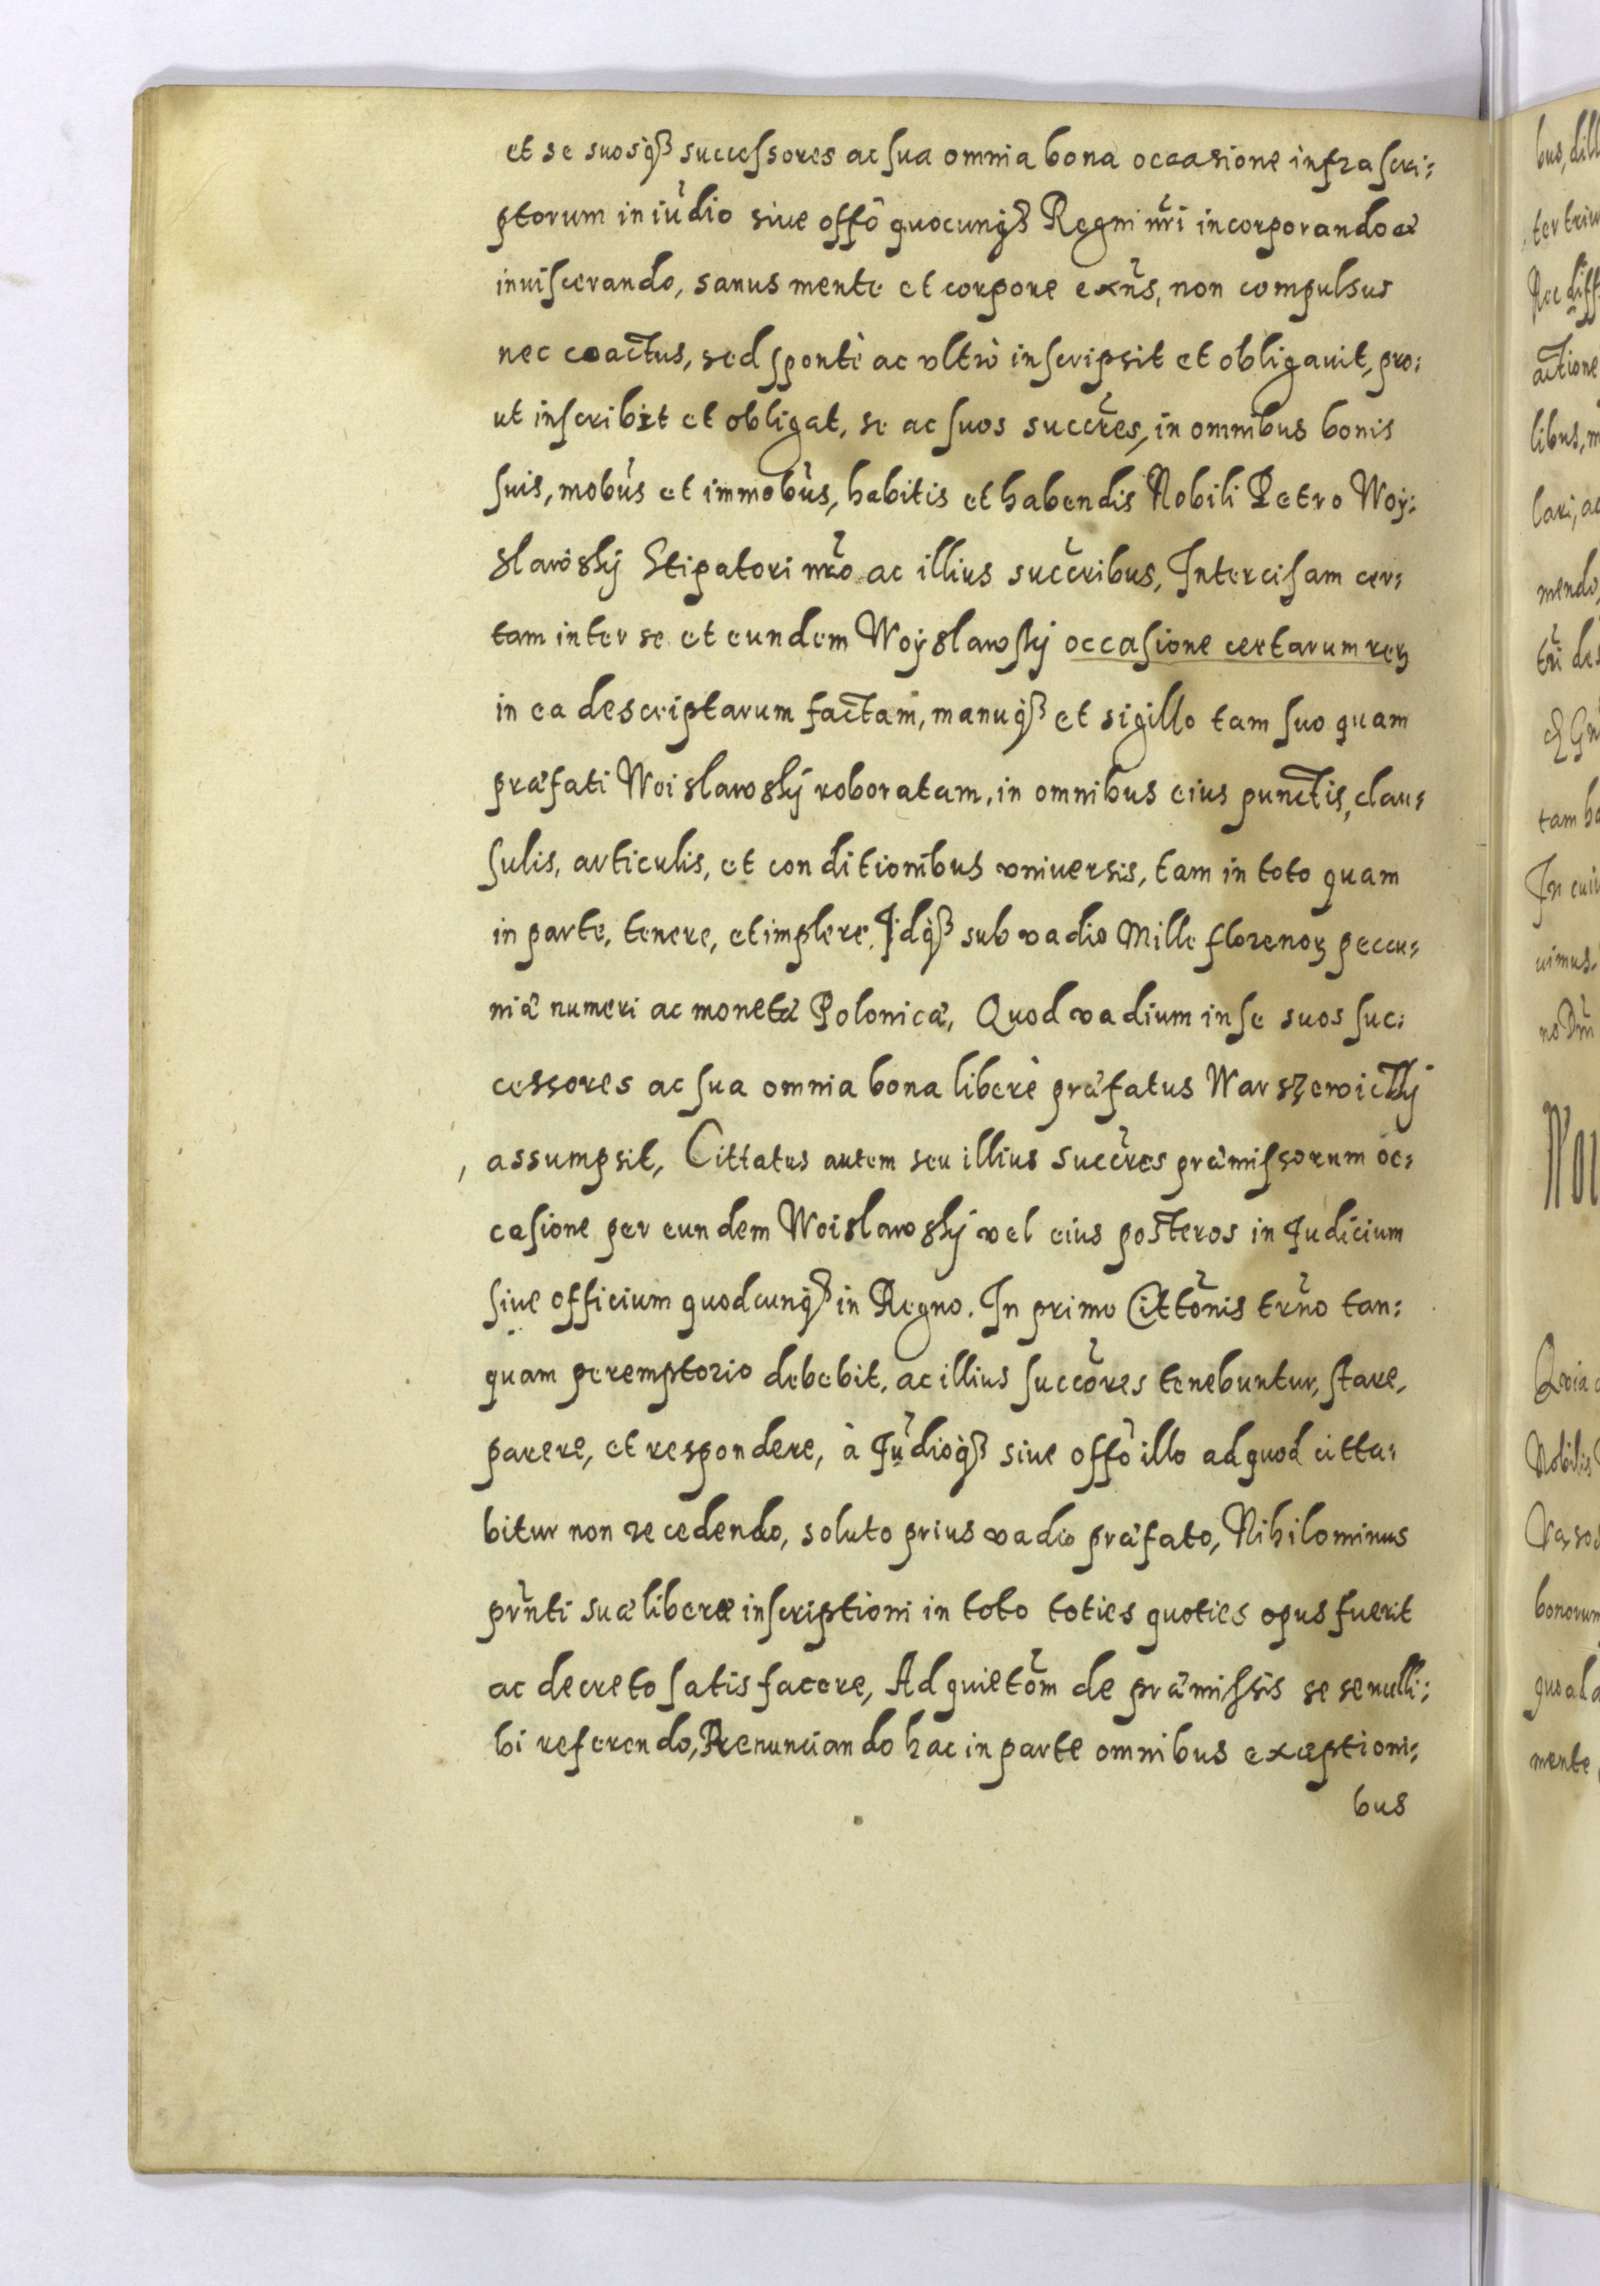 et se suosq́ successores ac sua omnia bona occasione infra scri:
ptorum in iu᷒dio siue offo᷒ quocunq́ Regni nr᷒i incorporando et
inuiscerando, sanus mente et corpore exn᷒s, non compulsus
nec coactus, sed spontè ac vltrò inscripsit et obligauit, pro:
ut inscribit et obligat, se ac suos succr᷒es, in omnibus bonis
suis, mobu᷒s et immobu᷒s, habitis et habendis Nobili Petro Woy:
slawsky Stipatori nr᷒o ac illius succr᷒ibus, Intercisam cer:
tam inter se et eundem Woyslawsky occasione certarum reꝝ
in ea descriptarum factam, manuq́ et sigillo tam suo quam
præfati Woislawsky roboratam, in omnibus eius punctis, clau:
sulis, articulis, et conditionibus vniuersis, tam in toto quam
in parte, tenere, et implere. Idq́ sub vadio Mille florenoꝝ peccu:
niæ numeri ac monetæ Polonicæ, Quod vadium in se suos suc:
cessores ac sua omnia bona liberè præfatus Warszewicky
assumpsit, Cittatus autem seu illius succr᷒es præmissorum oc:
casione per eundem Woislawsky vel eius posteros in Iudicium
siue officium quodcunq́ in Regno. In primo Citto᷒nis trn᷒o tan:
quam peremptorio debebit, ac illius succo᷒res tenebuntur, stare,
parere, et respondere, à Iu᷒dioq́ siue offo᷒ illo ad quod citta:
bitur non recedendo, soluto prius vadio præfato, Nihilominus
prn᷒ti suæ liberæ inscriptioni in toto toties quoties opus fuerit
ac decreto satisfacere, Ad quieto᷒m de præmissis se se nulli:
bi referendo, Renunciando hac in parte omnibus exceptioni:
bus